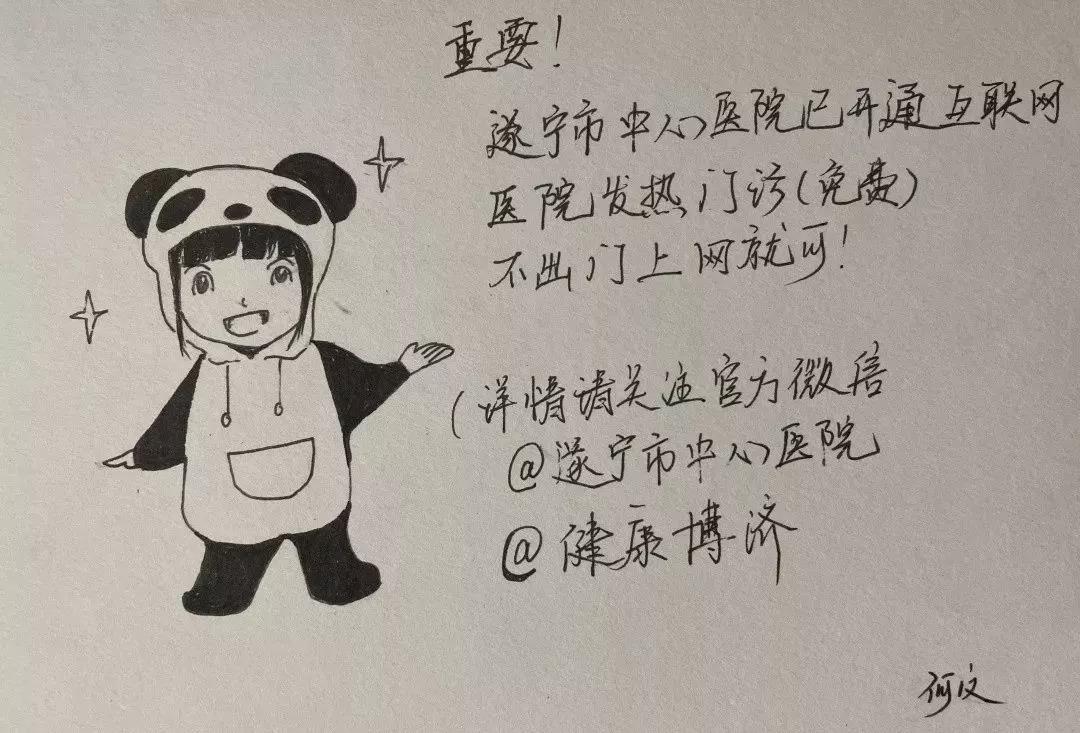 重要！
遂宁市中心医院已开通互联网
医院发热门诊(免费)
不出门上网就可！
(详情请关注官方微信
@遂宁市中心医院
@健康博济
何文